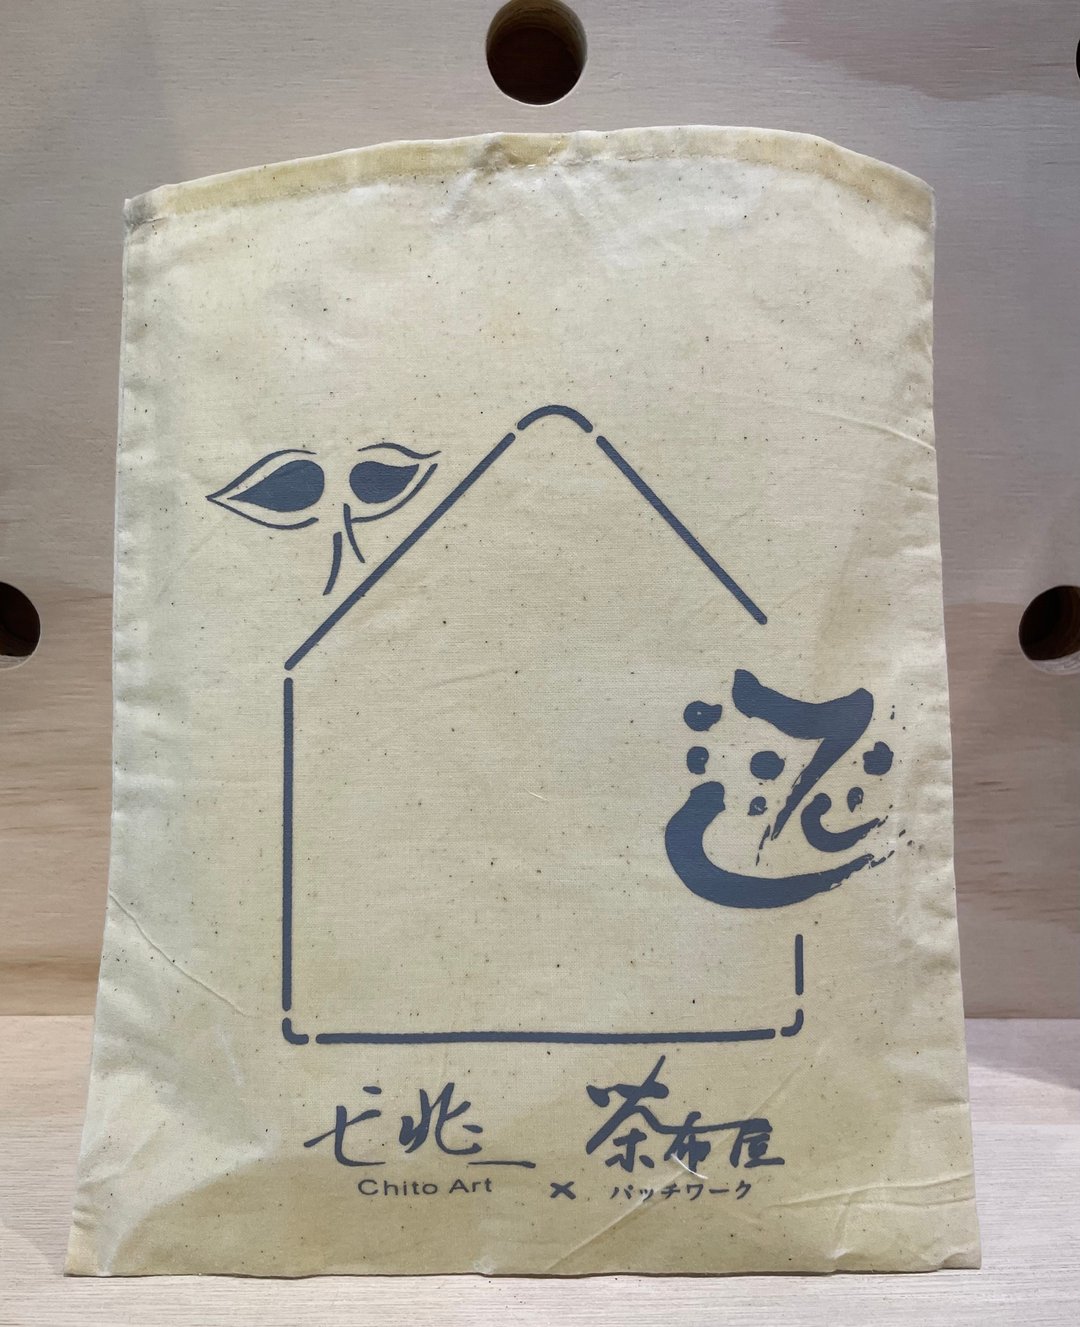 七兆 茶布屋
Chito Art × パッチワーク